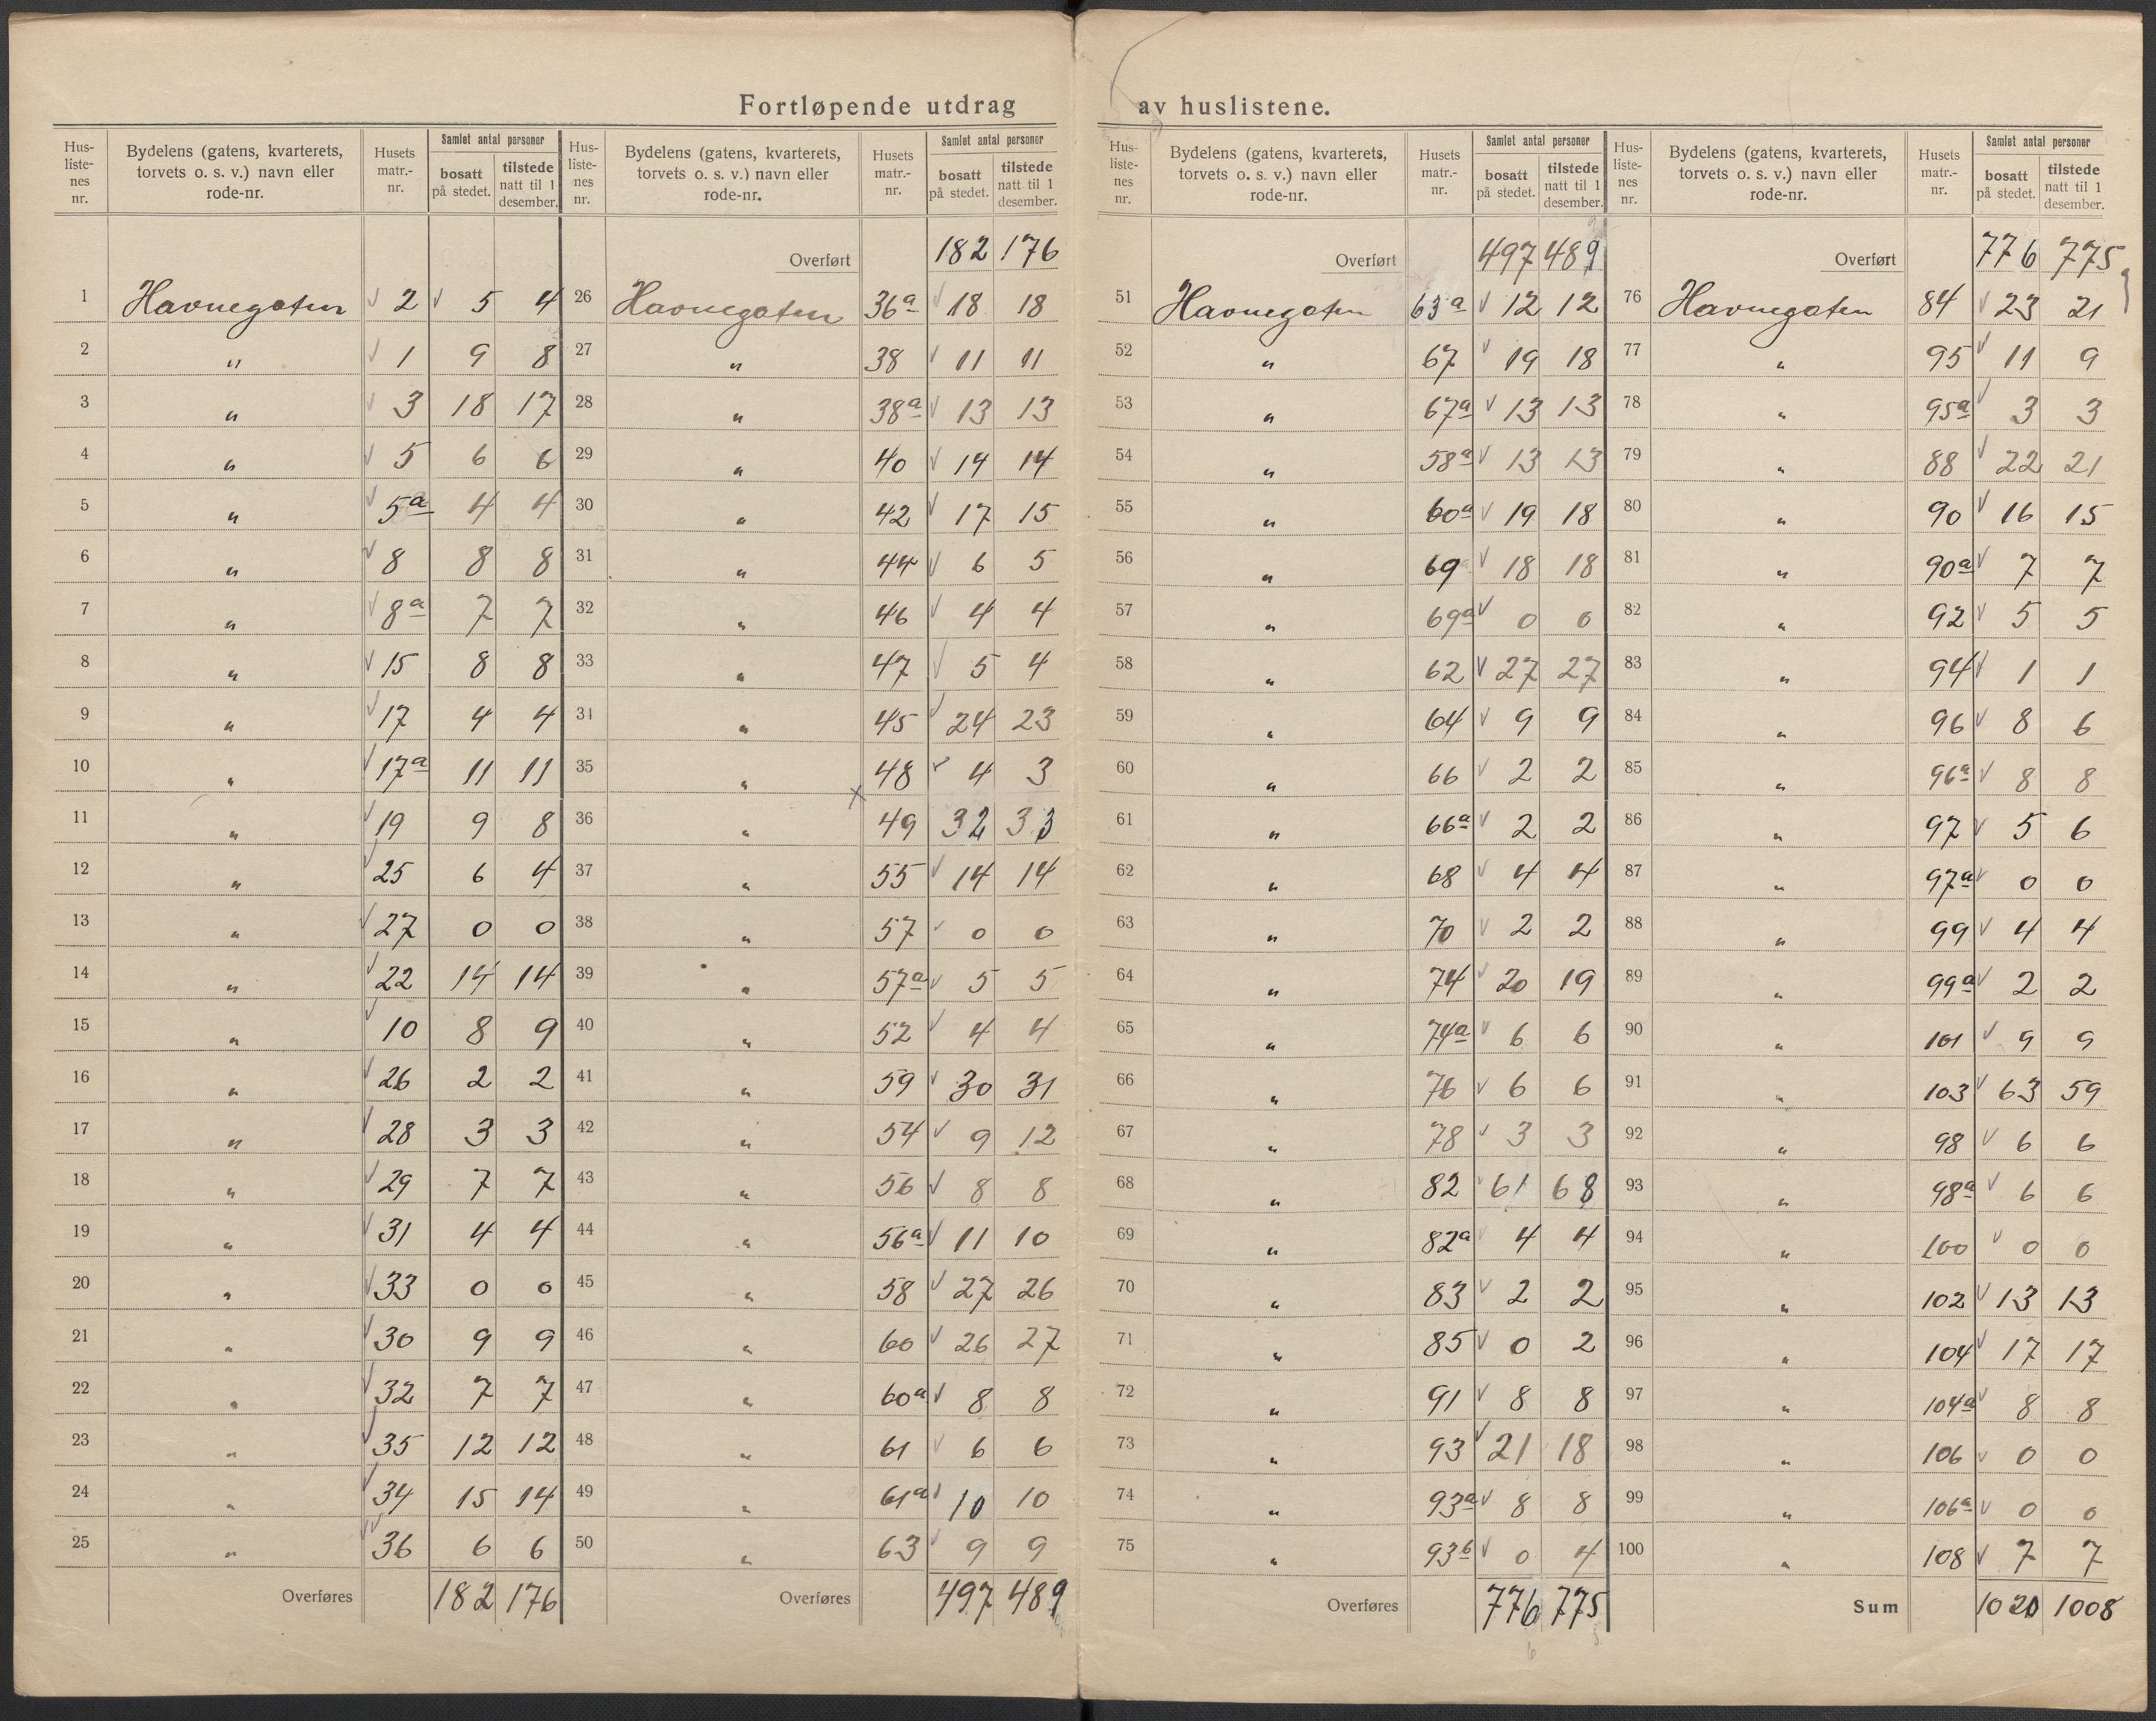 Fortløpende utdrag av huslistene.
Hus-liste-nes nr. | Bydelens (gatens, kvarterets, torvets o. s. v.) navn eller rode-nr. | Husets matr.-nr. | Samlet antal personer bosatt på stedet. | tilstede natt til 1 desember.
1 Havnegaten 2 5 4
2 " 1 9 8
3 " 3 18 17
4 " 5 6 6
5 " 5a 4 4
6 " 8 8 8
7 " 8a 7 7
8 " 15 8 8
9 " 17 4 4
10 " 17a 11 11
11 " 19 9 8
12 " 25 6 4
13 " 27 0 0
14 " 22 14 14
15 " 10 8 9
16 " 26 2 2
17 " 28 3 3
18 " 29 7 7
19 " 31 4 4
20 " 33 0 0
21 " 30 9 9
22 " 32 7 7
23 " 35 12 12
24 " 34 15 14
25 " 36 6 6
Overføres 182 176
Hus-liste-nes nr. | Bydelens (gatens, kvarterets, torvets o. s. v.) navn eller rode-nr. | Husets matr.-nr. | Samlet antal personer bosatt på stedet. | tilstede natt til 1 desember.
Overført 182 176
26 Havnegaten 36a 18 18
27 " 38 11 11
28 " 38a 13 13
29 " 40 14 14
30 " 42 17 15
31 " 44 6 5
32 " 46 4 4
33 " 47 5 4
34 " 45 24 23
35 " 48 4 3
36 " 49 32 33
37 " 55 14 14
38 " 57 0 0
39 " 57a 5 5
40 " 52 4 4
41 " 59 30 31
42 " 54 9 12
43 " 56 8 8
44 " 56a 11 10
45 " 58 27 26
46 " 60 26 27
47 " 60a 8 8
48 " 61 6 6
49 " 61a 10 10
50 " 63 9 9
Overføres 497 489
Hus-liste-nes nr. | Bydelens (gatens, kvarterets, torvets o. s. v.) navn eller rode-nr. | Husets matr.-nr. | Samlet antal personer bosatt på stedet. | tilstede natt til 1 desember.
Overført 497 489
51 Havnegaten 63a 12 12
52 " 67 19 18
53 " 67a 13 13
54 " 58a 13 13
55 " 60a 19 18
56 " 69 18 18
57 " 69a 0 0
58 " 62 27 27
59 " 64 9 9
60 " 66 2 2
61 " 66a 2 2
62 " 68 4 4
63 " 70 2 2
64 " 74 20 19
65 " 74a 6 6
66 " 76 6 6
67 " 78 3 3
68 " 82 61 68
69 " 82a 4 4
70 " 83 2 2
71 " 85 0 2
72 " 91 8 8
73 " 93 21 18
74 " 93a 8 8
75 " 93b 0 4
Overføres 776 775
Hus-liste-nes nr. | Bydelens (gatens, kvarterets, torvets o. s. v.) navn eller rode-nr. | Husets matr.-nr. | Samlet antal personer bosatt på stedet. | tilstede natt til 1 desember.
Overført 776 775
76 Havnegaten 84 23 21
77 " 95 11 9
78 " 95a 3 3
79 " 88 22 21
80 " 90 16 15
81 " 90a 7 7
82 " 92 5 5
83 " 94 1 1
84 " 96 8 6
85 " 96a 8 8
86 " 97 5 6
87 " 97a 0 0
88 " 99 4 4
89 " 99a 2 2
90 " 101 9 9
91 " 103 63 59
92 " 98 6 6
93 " 98a 6 6
94 " 100 0 0
95 " 102 13 13
96 " 104 17 17
97 " 104a 8 8
98 " 106 0 0
99 " 106a 0 0
100 " 108 7 7
Sum 1020 1008